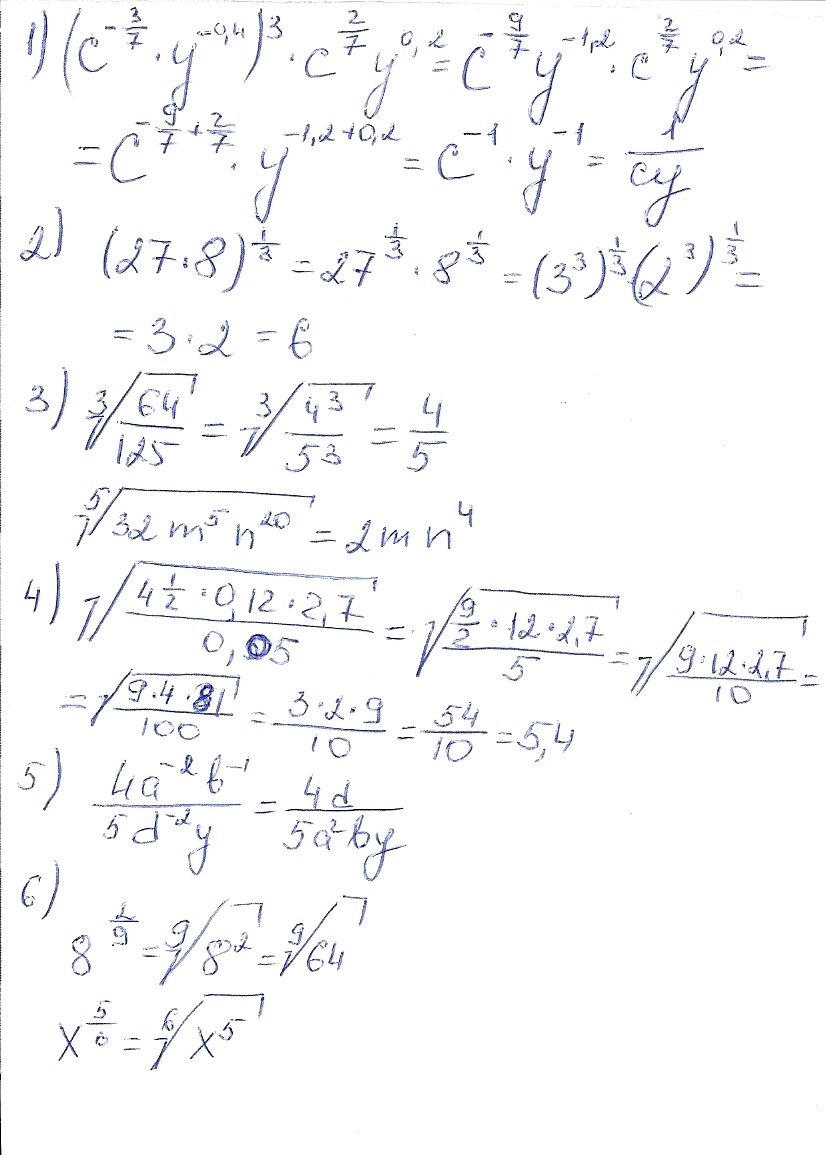 1) (c^{-\frac{3}{7}} · y^{-0,4})^3 · c^{\frac{2}{7}} y^{0,2} = c^{-\frac{9}{7}} y^{-1,2} · c^{\frac{2}{7}} y^{0,2} =
= c^{-\frac{9}{7}+\frac{2}{7}} · y^{-1,2+0,2} = c^{-1} · y^{-1} = \frac{1}{cy}
2) (27·8)^{\frac{1}{3}} = 27^{\frac{1}{3}} · 8^{\frac{1}{3}} = (3^3)^{\frac{1}{3}} · (2^3)^{\frac{1}{3}} =
= 3·2 = 6
3) \sqrt[3]{\frac{64}{125}} = \sqrt[3]{\frac{4^3}{5^3}} = \frac{4}{5}
\sqrt[5]{32 m^5 n^{20}} = 2mn^4
4) \sqrt{\frac{4\frac{1}{2} · 0,12 · 2,7}{0,05}} = \sqrt{\frac{\frac{9}{2} · 12 · 2,7}{5}} = \sqrt{\frac{9·12·2,7}{10}} =
= \sqrt{\frac{9·4·81}{100}} = \frac{3·2·9}{10} = \frac{54}{10} = 5,4
5) \frac{4a^{-2} b^{-1}}{5d^{-2} y} = \frac{4d}{5a^2 by}
6)
8^{\frac{2}{9}} = \sqrt[9]{8^2} = \sqrt[9]{64}
x^{\frac{5}{6}} = \sqrt[6]{x^5}